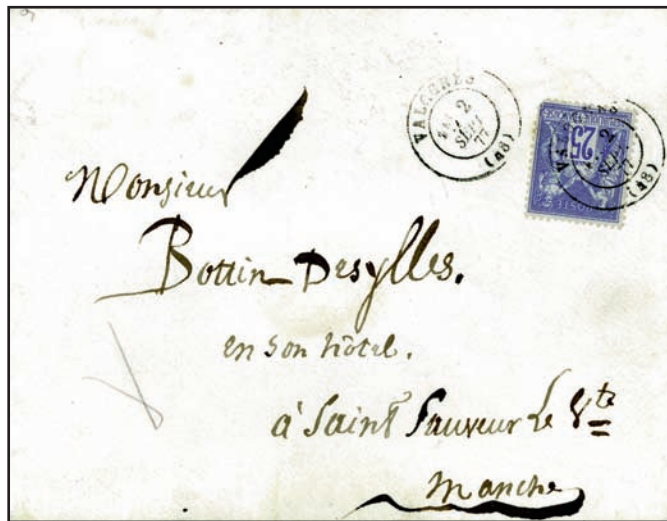 VALOGNES
2
SEPT
77
(48)
25
POSTE
Monsieur
Bottin-Desylles.
en son hôtel.
à Saint Sauveur le Vte
Manche